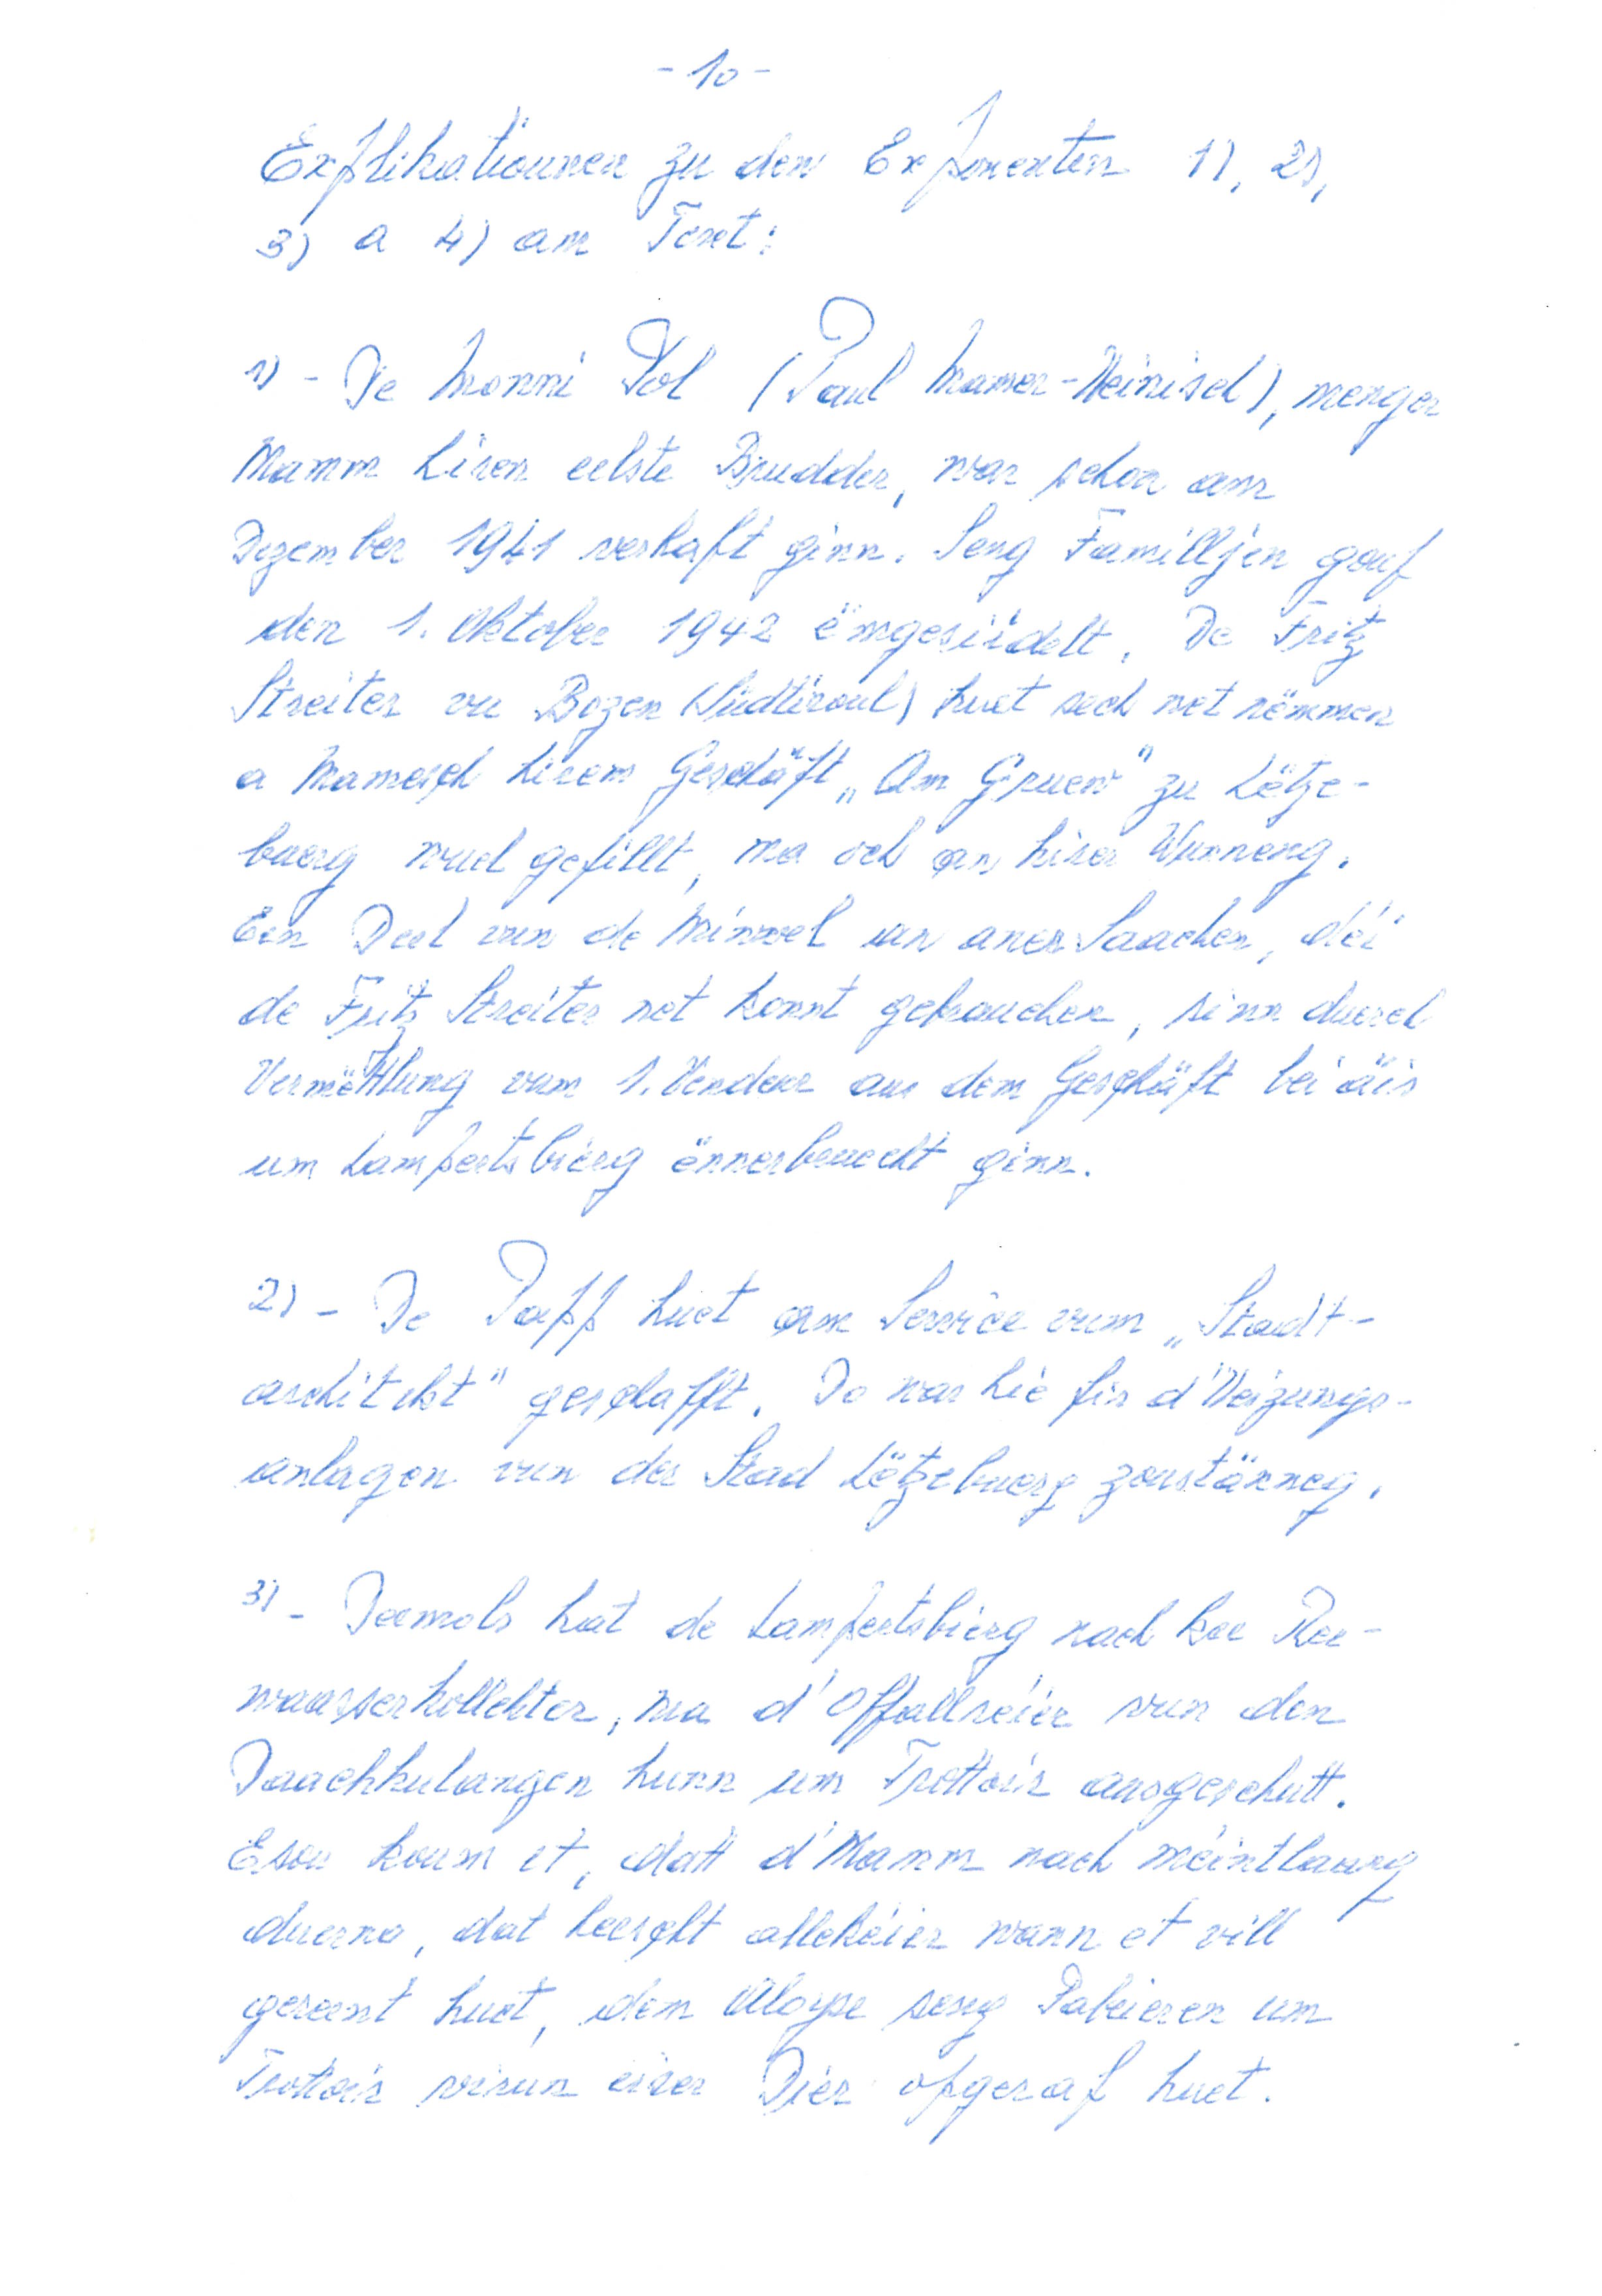 - 10 -
Explikatiounen zu den Exponenten 1), 2),
3) a 4) am Text:
1) - De Monni Pol (Paul Mamer-Heinisch), menger
Mamm hiren eelste Brudder, war schon am
Dezember 1941 verhaft ginn. Seng Familljen gouf
den 1. Oktober 1942 ëmgesiidelt. De Fritz
Streiter vu Bozen (Südtiroul) huet sech net nëmmen
a Mamesch hirem Geschäft „Am Gruew" zu Lëtze-
buerg wuel gefillt, ma och an hirer Wunneng.
Een Deel vun de Miwwel an aner Saachen, déi
de Fritz Streiter net konnt gebrauchen, sinn duerch
Vermëttlung vum 1. Vendeur aus dem Geschäft bei äis
um Lampertsbierg ënnerbruecht ginn.
2) - De Papp huet am Service vum „Stadt-
architekt" geschafft. Do war hie fir d'Heizungs-
anlagen vun der Stad Lëtzebuerg zoustänneg.
3) - Deemols hat de Lampertsbierg nach kee Ree-
waasserkollekter, ma d'Offallréier vun den
Daachkulangen hunn um Trottoir ausgeschutt.
Esou koum et, datt d'Mamm nach méintlaang
duerno, dat heescht allekéier wann et vill
gereent huet, dem Aloyse seng Pabeieren um
Trottoir virun eiser Dier opgeraf huet.